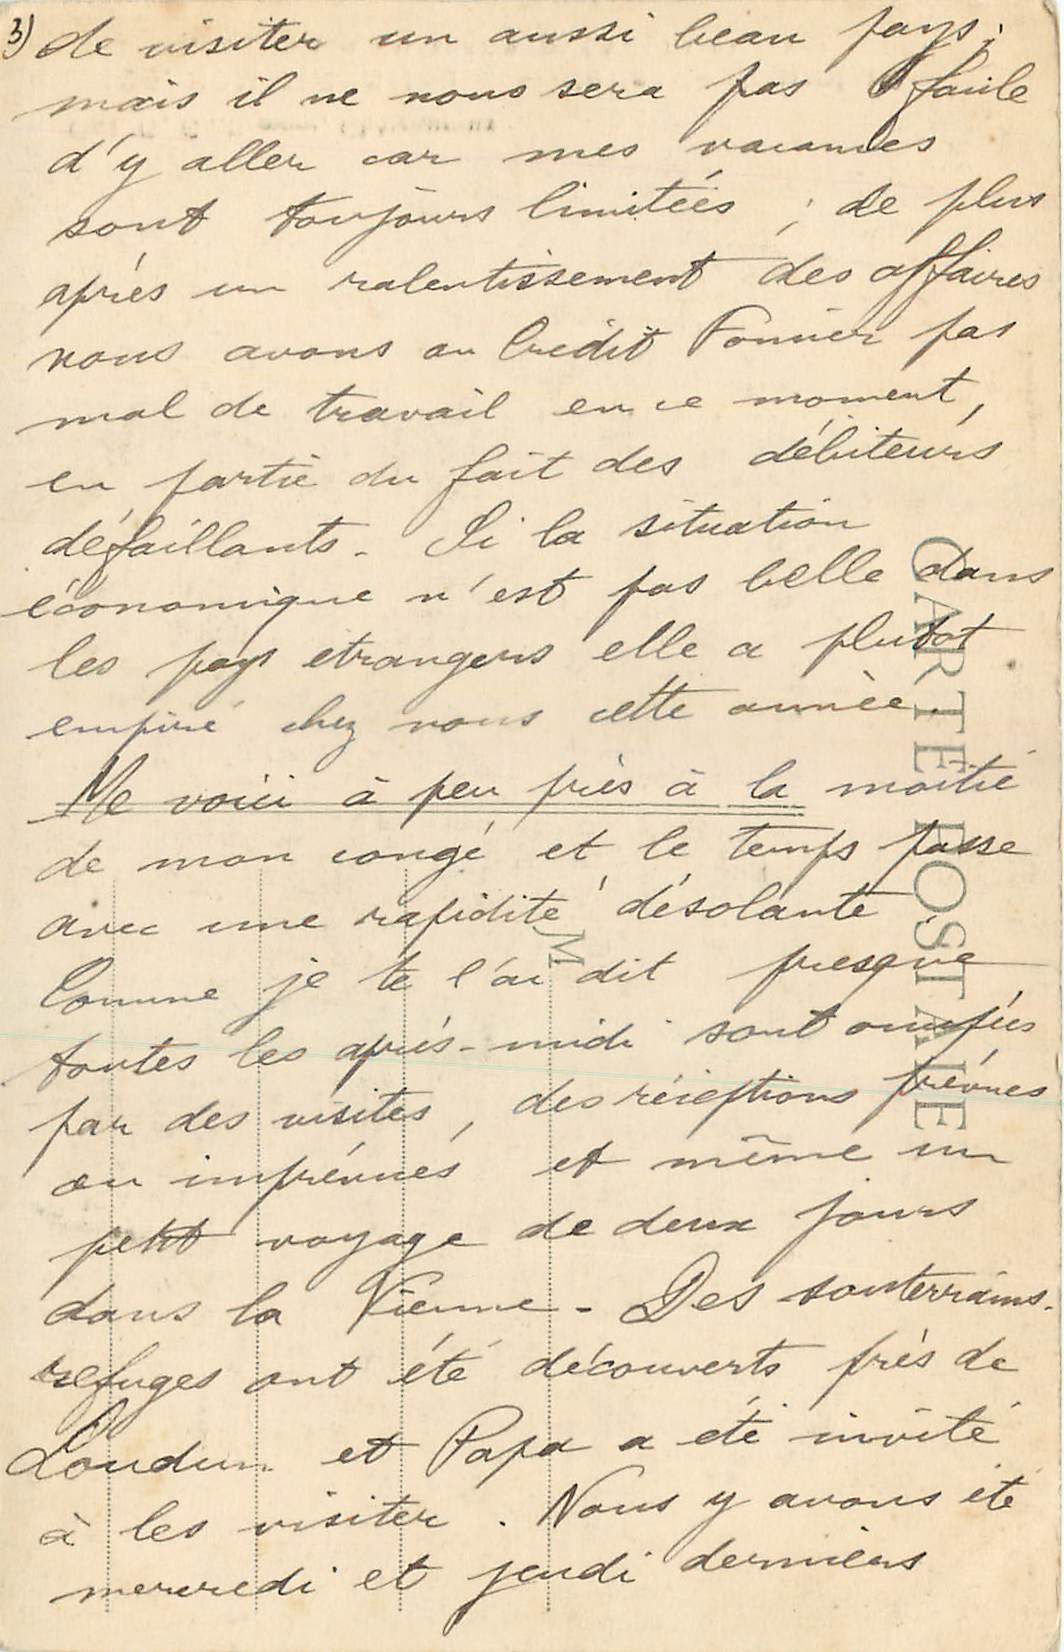 3) de visiter un aussi beau pays ;
mais il ne nous sera pas facile
d'y aller car mes vacances
sont toujours limitées ; de plus
après un ralentissement des affaires
nous avons au Crédit Foncier pas
mal de travail en ce moment,
en partie du fait des débiteurs
défaillants. Si la situation
économique n'est pas belle dans
les pays étrangers elle a plutot
empiré chez nous cette année.
Me voici à peu près à la moitié
de mon congé et le temps passe
avec une rapidité désolante.
Comme je te l'ai dit presque
toutes les après-midi sont occupées
par des visites, des réceptions prévues
ou imprévues et même un
petit voyage de deux jours
dans la Vienne - Des souterrains-
refuges ont été découverts près de
Loudun et Papa a été invité
à les visiter. Nous y avons été
mercredi et jeudi derniers
CARTE POSTALE
M